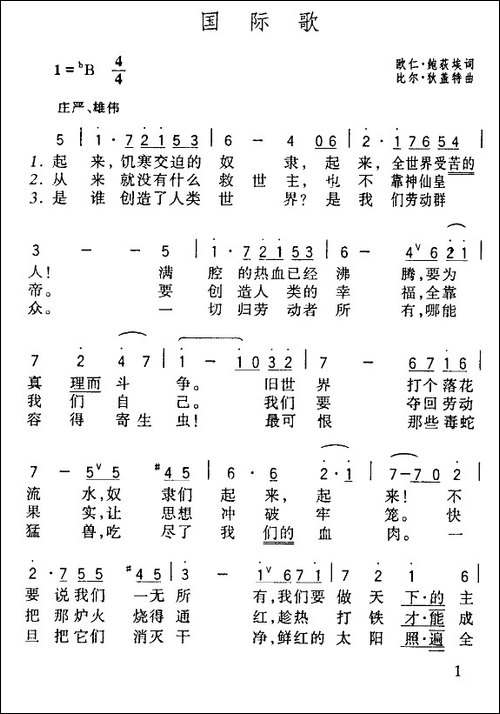 国 际 歌
1=ᵇB 4/4
欧仁·鲍荻埃词
比尔·狄盖特曲
庄严、雄伟
5 | 1·7 2 1 5 3 | 6 - 4 0 6 | 2·1 7 6 5 4 |
1. 起 来, 饥寒交迫的 奴 隶, 起 来, 全世界受苦的
2. 从 来 就没有什么 救 世 主, 也 不 靠神仙皇
3. 是 谁 创造了人类 世 界? 是 我 们劳动群
3 - - 5 | 1·7 2 1 5 3 | 6 - 4ⱽ 6 2 1 |
人! 满 腔 的热血已经 沸 腾,要为
帝。 要 创 造人 类的 幸 福,全靠
众。 一 切 归劳 动者 所 有,哪能
7 2 4 7 | 1 - 1 0 3 2 | 7 - 6 7 1 6 |
真 理而 斗 争。 旧世 界 打个 落花
我 们 自 己。 我们 要 夺回 劳动
容 得 寄生 虫! 最可 恨 那些 毒蛇
7 - 5ⱽ 5 #4 5 | 6·6 2·1 | 7-7 0 2 |
流 水,奴 隶们 起 来, 起 来! 不
果 实,让 思想 冲 破 牢 笼。 快
猛 兽,吃 尽了 我 们的 血 肉。 一
2·7 5 5 #4 5 | 3 - 1ⱽ 6 7 1 | 7 2 1 6 |
要 说我们 一无 所 有,我们要 做 天 下·的 主
把 那炉火 烧得 通 红,趁热 打 铁 才·能 成
旦 把它们 消灭 干 净,鲜红的 太 阳 照·遍 全
1